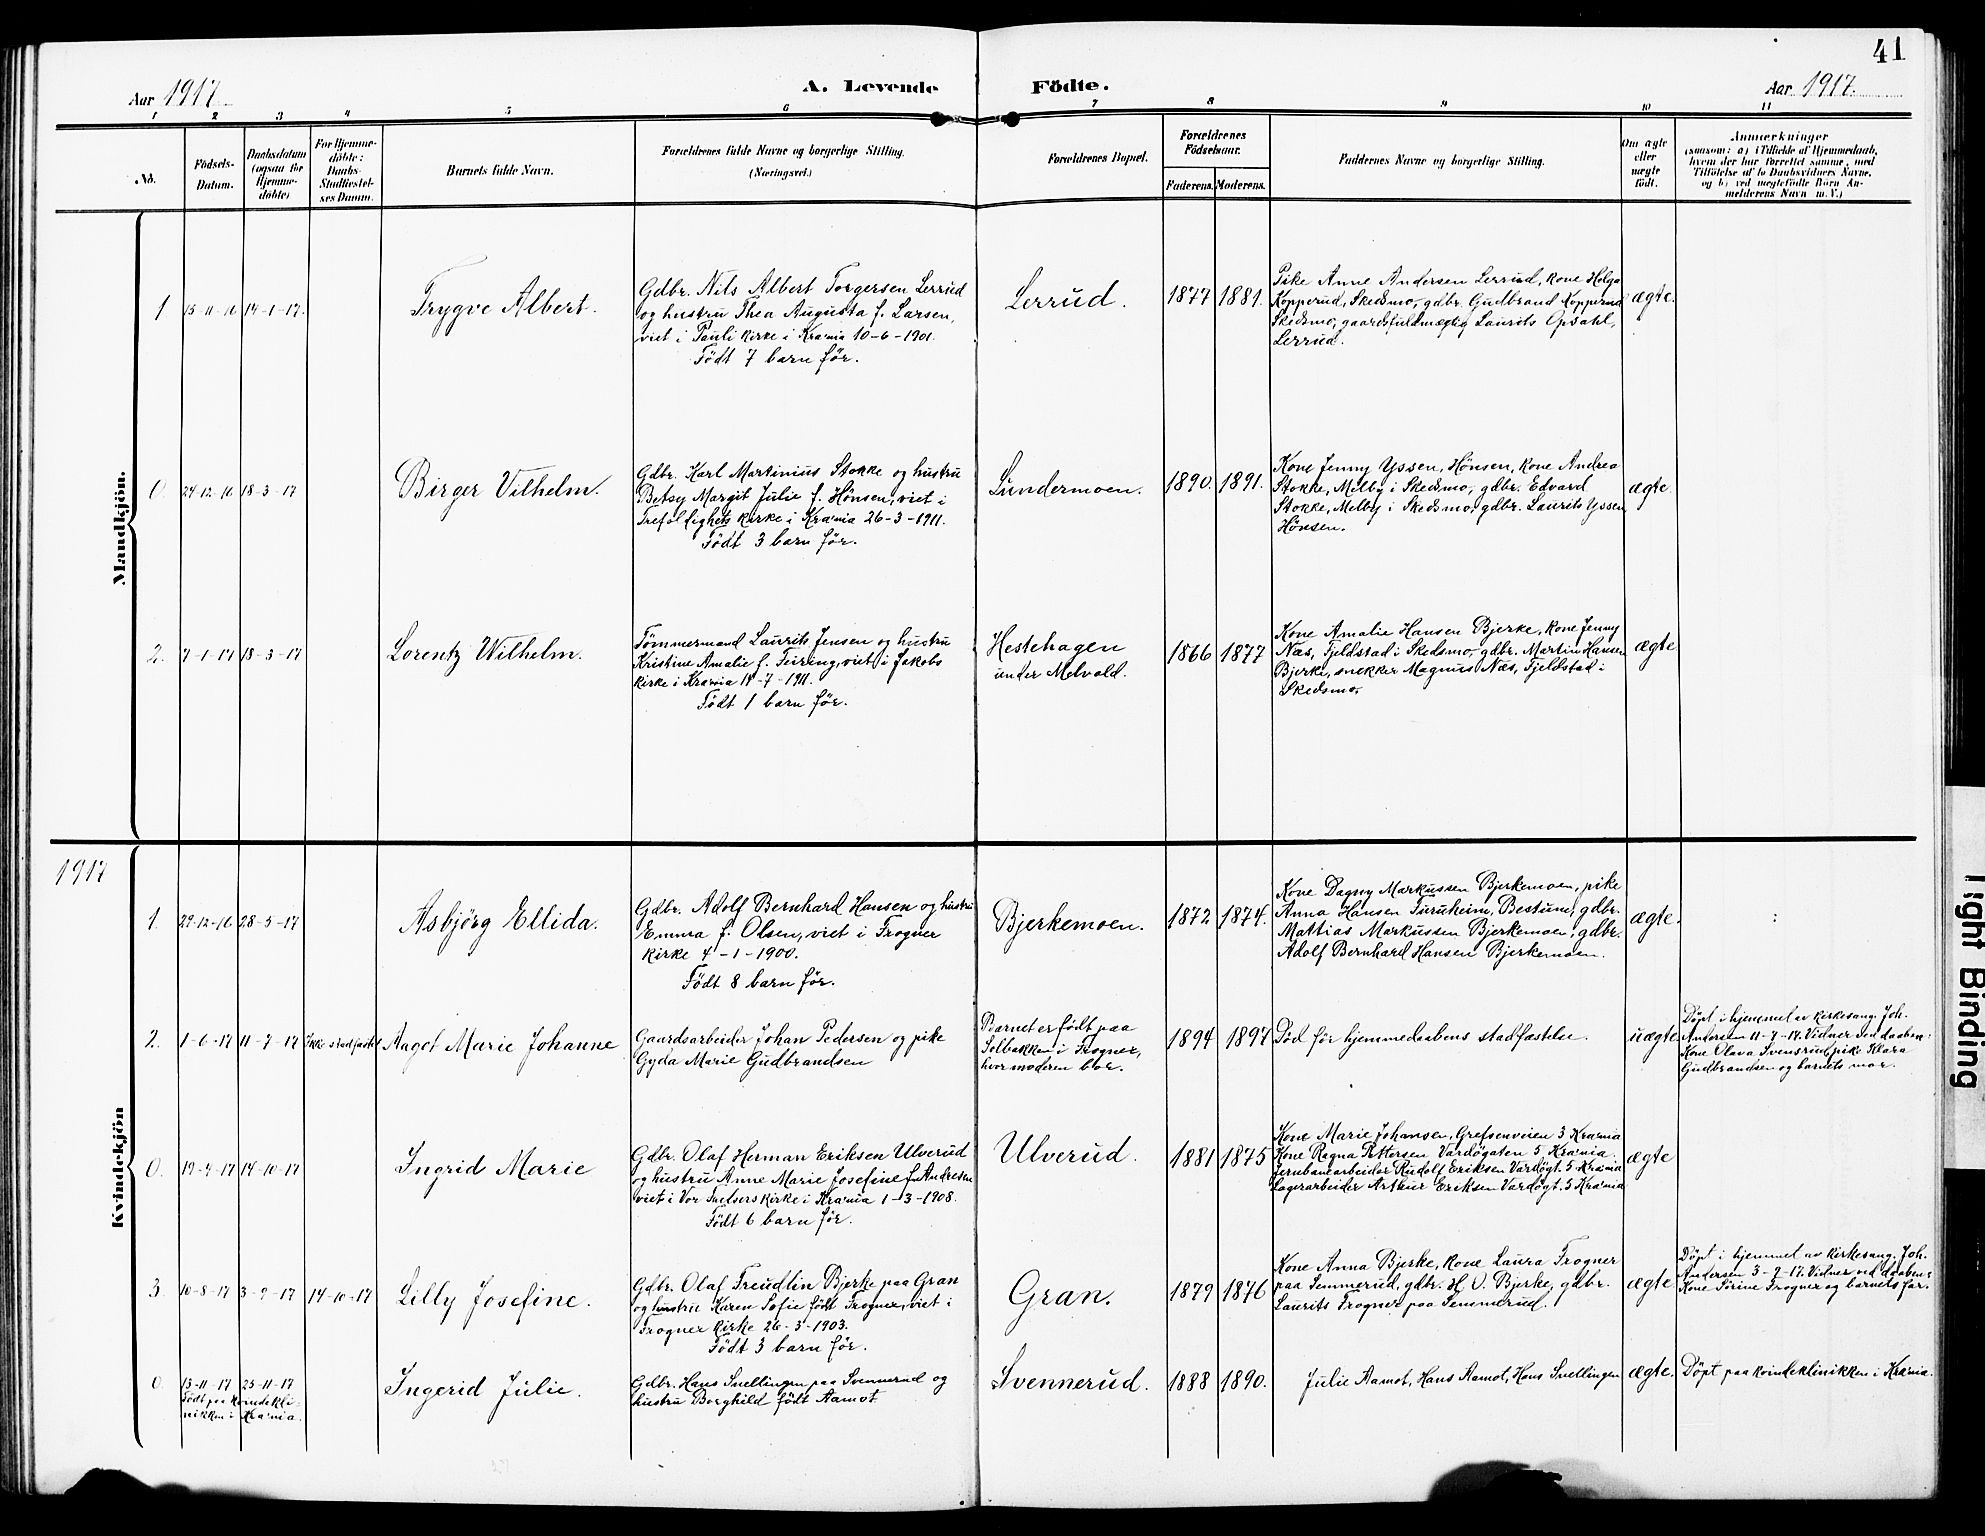 41
Aar 1917.
A. Levende Födte.
Aar 1917.
1 2 3 4 5 6 7 8 9 10 11
No.
Födsels-
Datum.
Daabsdatum
(ogsaa for
Hjemme-
döbte)
For Hjemme-
döbte:
Daabs-
Stadfæstel-
ses Datum.
Barnets fulde Navn.
Forældrenes fulde Navne og borgerlige Stilling.
(Næringsvei.)
Forældrenes Bopæl.
Forældrenes
Födselsaar.
Faderens. Moderens.
Faddernes Navne og borgerlige Stilling.
Om ægte
eller
uægte
födt.
Anmærkninger
(saasom: a) i Tilfælde af Hjemmedaab,
hvem der har forrettet samme, med
Tilföielse af to Daabsvidners Navne,
og b) ved uægtefödte Börn An-
melderens Navn m. V.)
Mandkjön.
1 15-11-16 14-1-17.
Trygve Albert.
Gdbr. Nils Albert Torgersen Lerrud
og hustru Thea Augusta f. Larsen,
viet i Pauli kirke i Kra'nia 10-6-1901.
Født 7 barn før.
Lerrud.
1877 1881.
Pike Anne Andersen Lerrud, kone Helga
Kopperud, Skedsmo, gdbr. Gudbrand Kopperud
Skedsmo, gaardsfuldmægtig Laurits Opdahl,
Lerrud.
ægte.
0. 24-12-16 18-3-17
Birger Vilhelm.
Gdbr. Karl Martinius Stokke og hustru
Betsy Margit Julie f. Hønsen, viet i
Trefoldighets kirke i Kra'nia 26-3-1911.
Født 3 barn før.
Lundermoen.
1890. 1891.
Kone Jenny Yssen, Hønsen, kone Andrea
Stokke, Melby i Skedsmo, gdbr. Edvard
Stokke, Melby i Skedsmo, gdbr. Laurits Yssen
Hønsen.
ægte.
2. 7-1-17 18-3-17
Lorentz Wilhelm.
Tømmermand Laurits Jensen og hustru
Kristine Amalie f. Feiring, viet i Jakobs
kirke i Kra'nia 14-7-1911.
Født 1 barn før.
Hestehagen
under Melvold.
1866 1877
Kone Amalie Hansen Bjerke, kone Jenny
Næs, Fjeldstad i Skedsmo, gdbr. Martin Hansen
Bjerke, snekker Magnus Næs, Fjeldstad i
Skedsmo.
ægte
1917
Kvindekjön
1. 22-12-16 28-5-17
Asbjörg Ellida.
Gdbr. Adolf Bernhard Hansen og hustru
Emma f. Olsen, viet i Frogner
kirke 4-1-1900.
Født 8 barn før.
Bjerkemoen.
1872 1874.
Kone Dagny Markussen Bjerkemoen, pike
Anna Hansen Furuheim, Bestum, gdbr.
Mattias Markussen Bjerkemoen, gdbr.
Adolf Bernhard Hansen Bjerkemoen.
ægte.
2. 1-6-17 11-7-17 Ikke stadfæstet
Aagot Marie Johanne
Gaardsarbeider Johan Pedersen og pike
Gyda Marie Gudbrandsen
Barnet er født paa
Solbakken i Frogner,
hvor moderen bor.
1894 1897
Død før hjemmedaabens stadfæstelse.
uægte
Døpt i hjemmet av kirkesang. Joh.
Andersen 11-7-17. Vidner ved daaben:
Kone Olava Svensrud, pike Klara
Gudbrandsen og barnets mor.
0. 19-9-17 14-10-17
Ingrid Marie
Gdbr. Olaf Herman Eriksen Ulverud
og hustru Anne Marie Josefine f. Andresen
viet i Vor Frelsers kirke i Kra'nia 1-13-1908.
Født 6 barn før.
Ulverud.
1881 1875
Kone Marie Johansen, Grefsenveien 3 Kra'nia
Kone Ragna Pettersen Vardøgaten 5 Kra'nia.
Jernbanearbeider Rudolf Eriksen Vardøgt. 5 Kra'nia
Lagerarbeider Arthur Eriksen Vardøgt. 5 Kra'nia
ægte
3. 10-8-17 3-9-17 14-10-17
Lilly Josefine.
Gdbr. Olaf Freudlin Bjerke paa Gran
og hustru Karen Sofie født Frogner, viet i
Frogner kirke 26-3-1903.
Født 3 barn før.
Gran.
1879 1876
Kone Anna Bjerke, kone Laura Frogner
paa Semmerud, gdbr. H. O. Bjerke, gdbr.
Laurits Frogner paa Semmerud.
ægte
Døpt i hjemmet av kirkesang. Joh.
Andersen 3-9-17. Vidner ved daaben:
Kone Sirine Frogner og barnets far.
0. 13-11-17 25-11-17
Født paa kvindekli-
nikken i Kra'nia.
Ingerid Julie.
Gdbr. Hans Snellingen paa Svennerud og
hustru Borghild født Aamot.
Svennerud.
1888 1890.
Julie Aamot, Hans Aamot, Hans Snellingen
ægte.
Døpt paa kvindeklinikken i Kra'nia.
Tight Binding